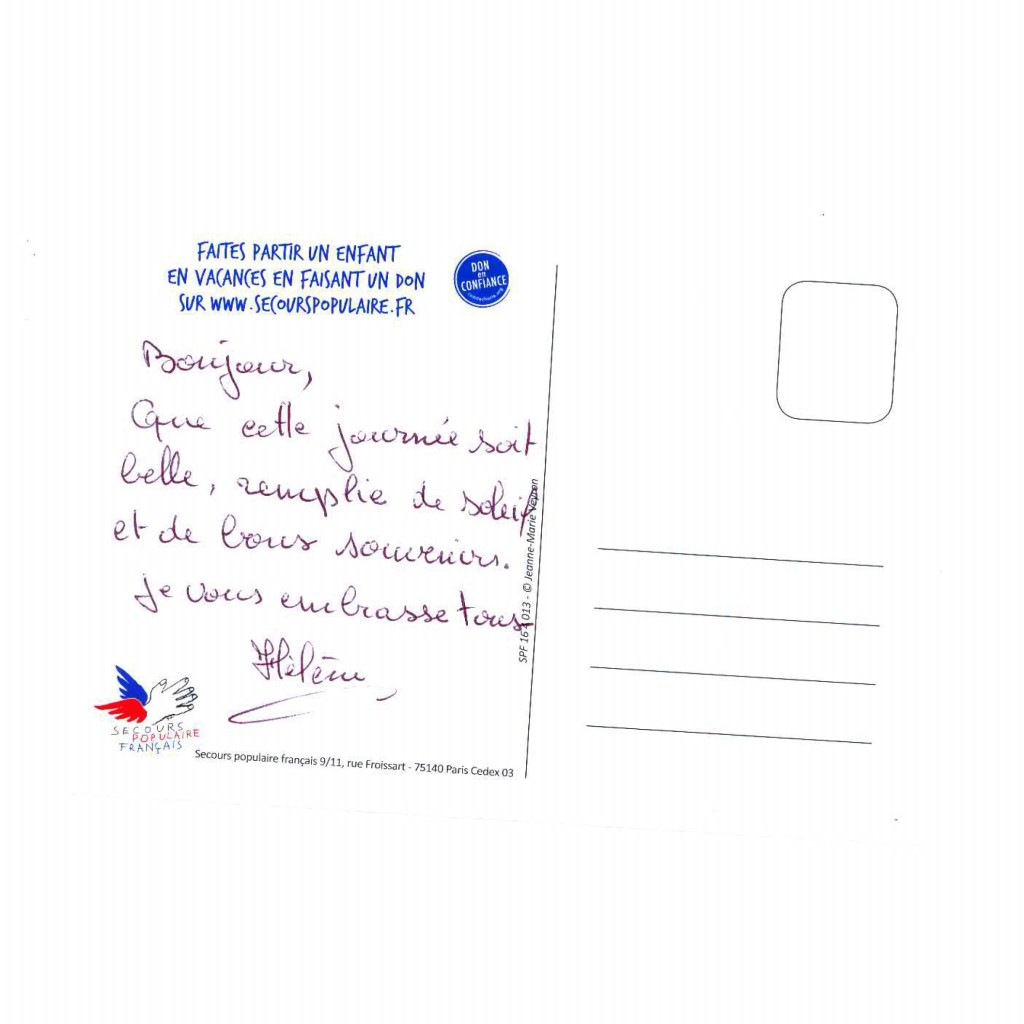 FAITES PARTIR UN ENFANT
EN VACANCES EN FAISANT UN DON
SUR WWW.SECOURSPOPULAIRE.FR
DON
en
CONFIANCE
Bonjour,
Que cette journée soit
belle, remplie de soleil
et de bons souvenirs.
Je vous embrasse tous
Hélène
SECOURS
POPULAIRE
FRANÇAIS
Secours populaire français 9/11, rue Froissart - 75140 Paris Cedex 03
013 - © Jeanne-Marie